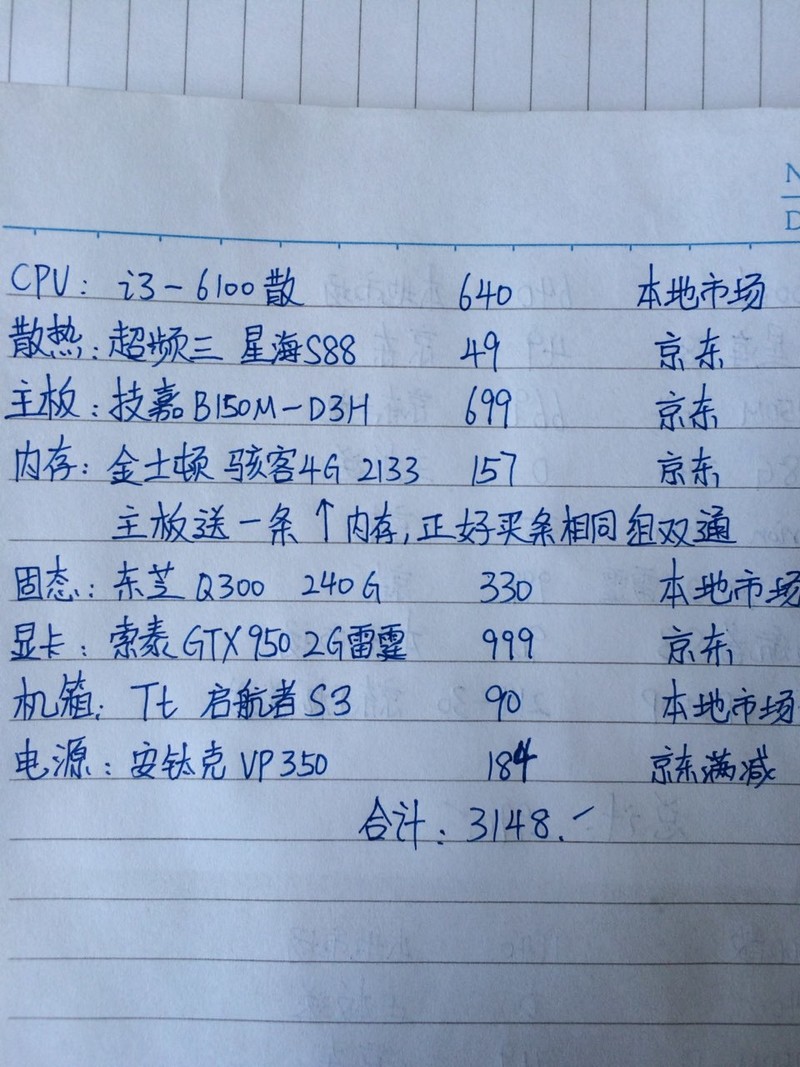 N
D
CPU: i3-6100散 640 本地市场
散热:超频三 星海S88 49 京东
主板:技嘉B150M-D3H 699 京东
内存:金士顿 骇客4G 2133 157 京东
主板送一条↑内存,正好买条相同组双通
固态:东芝Q300 240G 330 本地市场
显卡:索泰GTX950 2G雷霆 999 京东
机箱: Tt 启航者S3 90 本地市场
电源:安钛克VP350 184 京东满减
合计:3148.